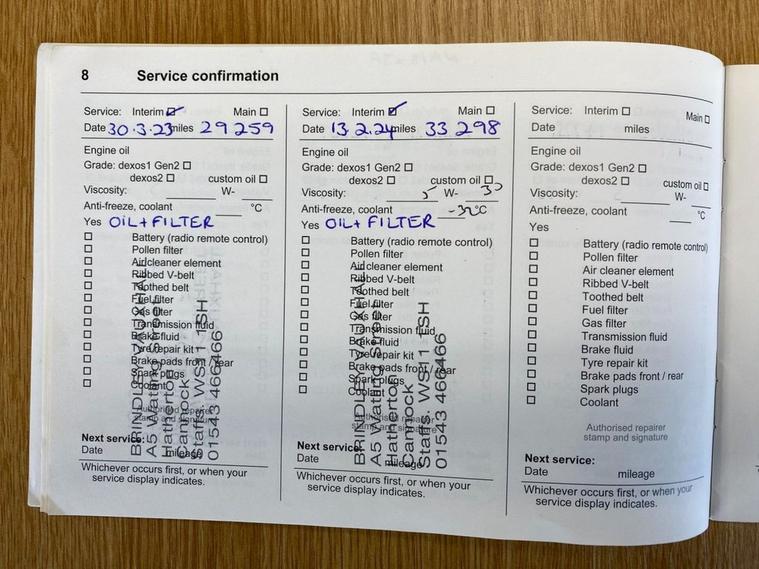 8 Service confirmation
Service: Interim ☑ Main ☐
Date 30.3.23 miles 29259
Engine oil
Grade: dexos1 Gen2 ☐
dexos2 ☐ custom oil ☐
Viscosity: W-
Anti-freeze, coolant °C
Yes OIL+FILTER
☐ Battery (radio remote control)
☐ Pollen filter
☐ Air cleaner element
☐ Ribbed V-belt
☐ Toothed belt
☐ Fuel filter
☐ Gas filter
☐ Transmission fluid
☐ Brake fluid
☐ Tyre repair kit
☐ Brake pads front / rear
☐ Spark plugs
☐ Coolant
Authorised repairer
stamp and signature
A5 Watling Street
Hatherton
Cannock
Staffs. WS11 1SH
01543 466466
Next service:
Date mileage
Whichever occurs first, or when your
service display indicates.
Service: Interim ☑ Main ☐
Date 13.2.24 miles 33298
Engine oil
Grade: dexos1 Gen2 ☐
dexos2 ☐ custom oil ☐
Viscosity: 5 W- 30
Anti-freeze, coolant °C
Yes OIL+ FILTER
☐ Battery (radio remote control)
☐ Pollen filter
☐ Air cleaner element
☐ Ribbed V-belt
☐ Toothed belt
☐ Fuel filter
☐ Gas filter
☐ Transmission fluid
☐ Brake fluid
☐ Tyre repair kit
☐ Brake pads front / rear
☐ Spark plugs
☐ Coolant
Authorised repairer
stamp and signature
A5 Watling Street
Hatherton
Cannock
Staffs. WS11 1SH
01543 466466
Next service:
Date mileage
Whichever occurs first, or when your
service display indicates.
Service: Interim ☐ Main ☐
Date miles
Engine oil
Grade: dexos1 Gen2 ☐
dexos2 ☐ custom oil ☐
Viscosity: W-
Anti-freeze, coolant °C
Yes
☐ Battery (radio remote control)
☐ Pollen filter
☐ Air cleaner element
☐ Ribbed V-belt
☐ Toothed belt
☐ Fuel filter
☐ Gas filter
☐ Transmission fluid
☐ Brake fluid
☐ Tyre repair kit
☐ Brake pads front / rear
☐ Spark plugs
☐ Coolant
Authorised repairer
stamp and signature
Next service:
Date mileage
Whichever occurs first, or when your
service display indicates.